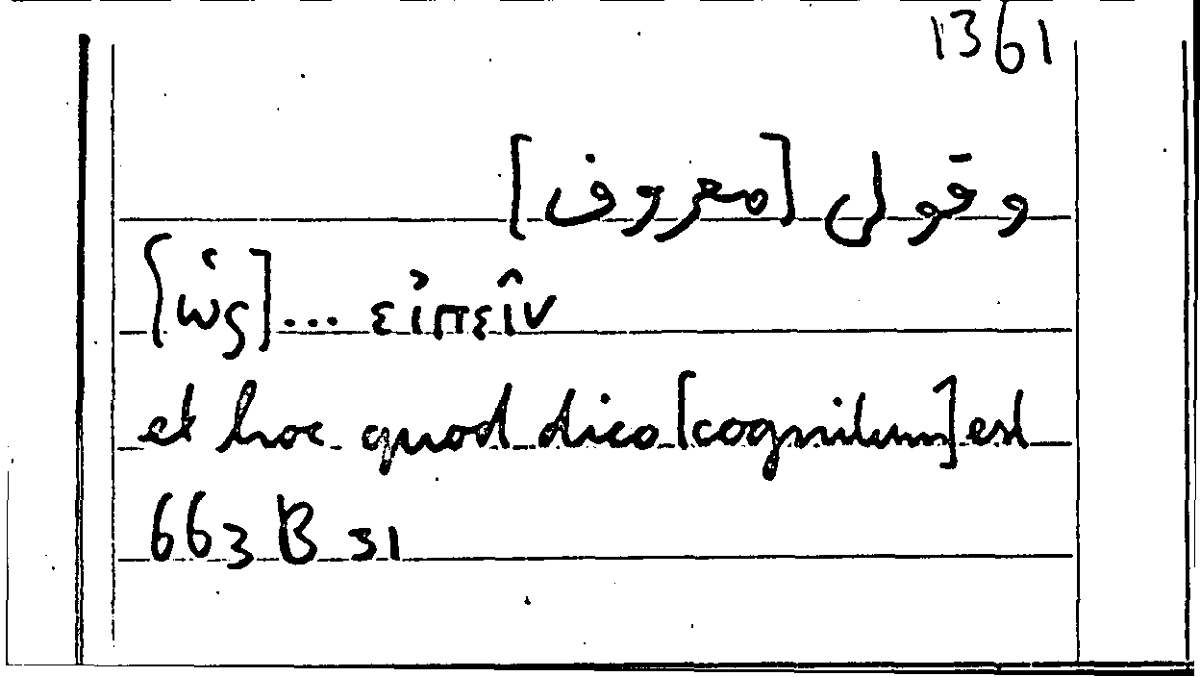 1361
وقولى [معروف]
[ὡς]... εἰπεῖν
et hoc quod dico [cognitum] est
663 B 31